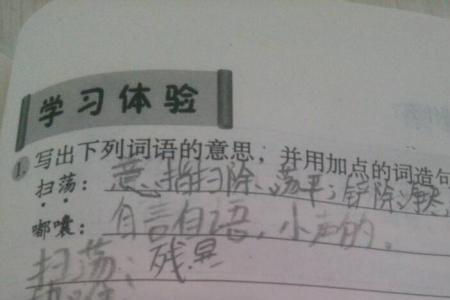 学习体验
1. 写出下列词语的意思，并用加点的词造句
扫荡：意：指扫除、荡平；铲除
嘟囔：自言自语，小声的。
扫荡：残